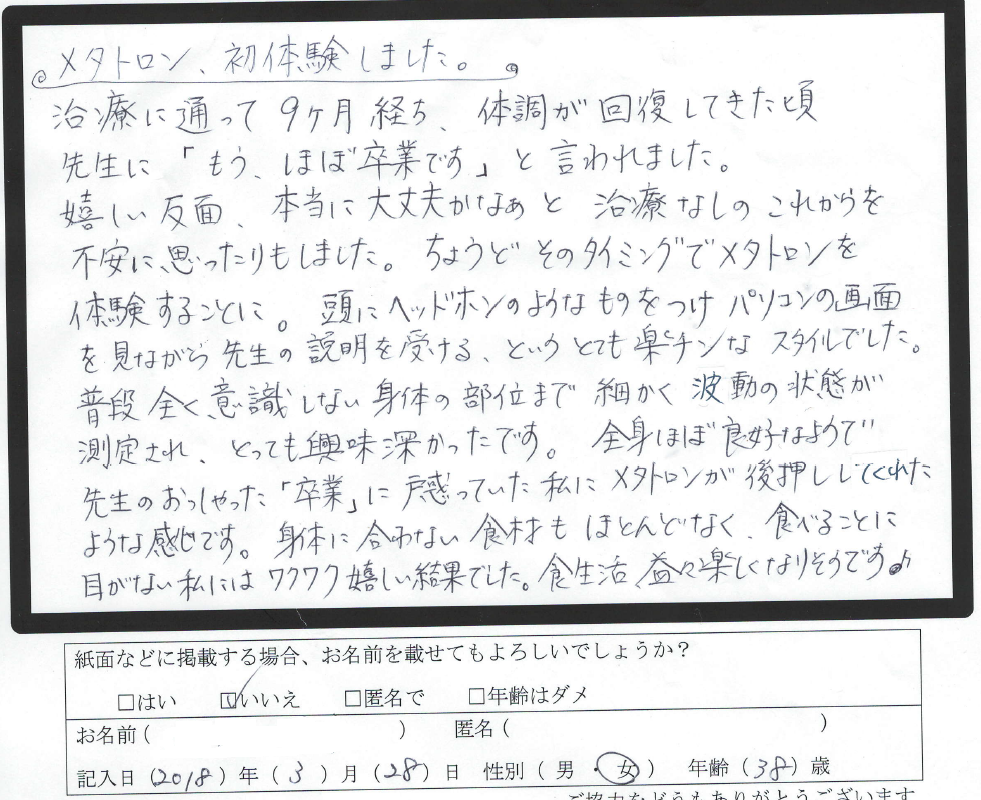 メタトロン、初体験しました。
治療に通って9ケ月経ち、体調が回復してきた頃
先生に「もう、ほぼ卒業です」と言われました。
嬉しい反面、本当に大丈夫かなぁと治療なしのこれからを
不安に思ったりもしました。ちょうどそのタイミングでメタトロンを
体験することに。頭にヘッドホンのようなものをつけパソコンの画面
を見ながら先生の説明を受ける、というとても楽チンなスタイルでした。
普段全く意識しない身体の部位まで細かく波動の状態が
測定され、とっても興味深かったです。全身ほぼ良好なようで
先生のおっしゃった「卒業」に戸惑っていた私にメタトロンが後押ししてくれた
ような感じです。身体に合わない食材もほとんどなく、食べることに
目がない私にはワクワク嬉しい結果でした。食生活、益々楽しくなりそうです♪
紙面などに掲載する場合、お名前を載せてもよろしいでしょうか?
□はい ☑いいえ □匿名で □年齢はダメ
お名前( ) 匿名( )
記入日(2018)年(3)月(28)日 性別(男・女) 年齢(38)歳
ご協力をどうもありがとうございます